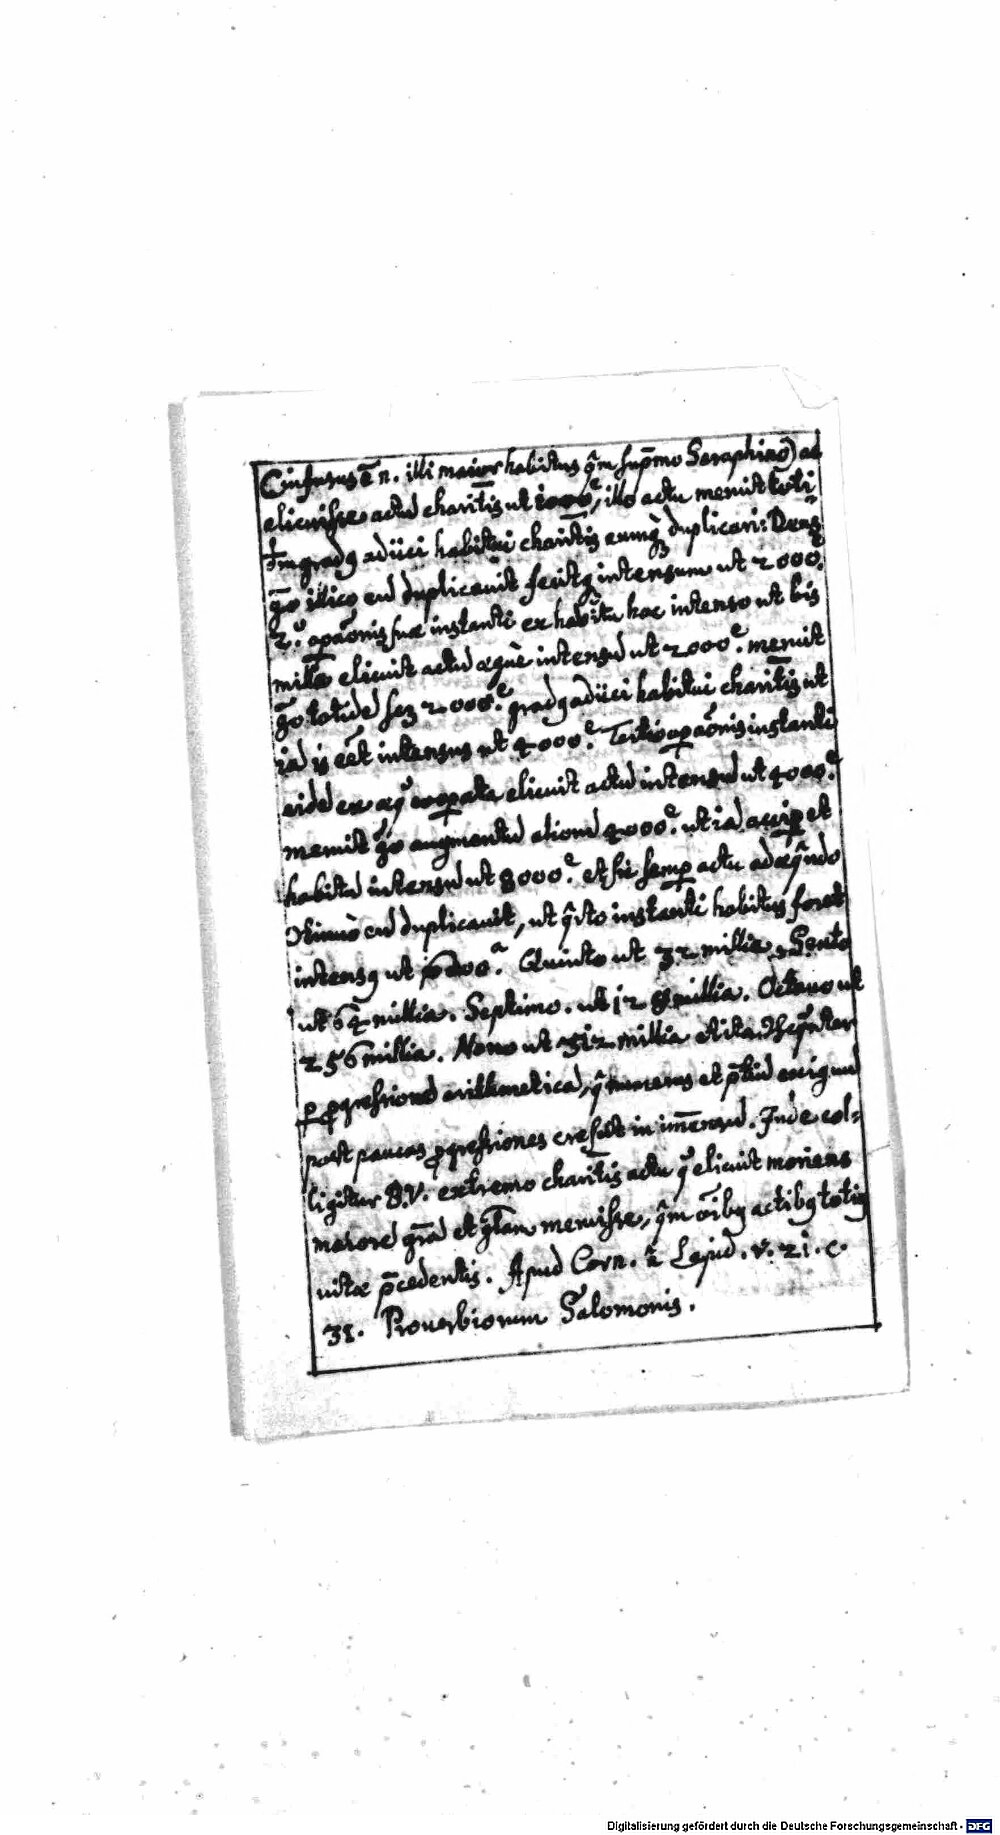 (infusus ē n. illi maior habitus q̃m sup̄mo Seraphino) ac
elicuisse actũ charit̄is ut 1000ᵉ, illo actu meruit toti
gradꝰ adiici habitui charit̄is eumq̃ duplicari: Deus
g̃o illico eũ duplicauit fecitq̃ intensum ut 2000.
2.º op̄aõnis suæ instanti ex habitu hoc intenso ut bis
mille elicuit actũ æquè intensũ ut 2000ᵉ. meruit
g̃o totidẽ scz 2000.ᵉ gradꝰ adiici habitui charit̄is ut
iã is eēt intensus ut 4000.ᵉ Tertio op̄aõnis instanti
eidẽ ex æq̃ coop̄ata elicuit actũ intensũ ut 4000.ᵉ
meruit g̃o augmentũ aliorũ 4000.ᵉ ut iã accip̄et
habitũ intensũ ut 8000.ᵉ et sic semp̄ actu adæq̃ndo
eũ duplicauit, ut q̃rto instanti habitus foret
intensꝰ ut Quinto ut 32 millia. Sexto
ut 64 millia. Septimo. ut 128 millia. Octauo ut
256 millia. Nono ut 512 millia et ita
p̄ p̄gressionẽ arithmeticã, q̃ numerus et p̄tiũ exiguũ
post paucas p̄gressiones crescit in im̄ensũ. Inde col-
ligitur B.V. extremo charit̄is actu q̃ elicuit moriens
maiorẽ gr̃ã et gl̃iam meruisse, q̃m õibꝰ actibꝰ totiꝰ
uitæ p̄cedentis. Apud Corn. à Lapid. v. 21. c.
31. Prouerbiorum Salomonis.
Digitalisierung gefördert durch die Deutsche Forschungsgemeinschaft - DFG